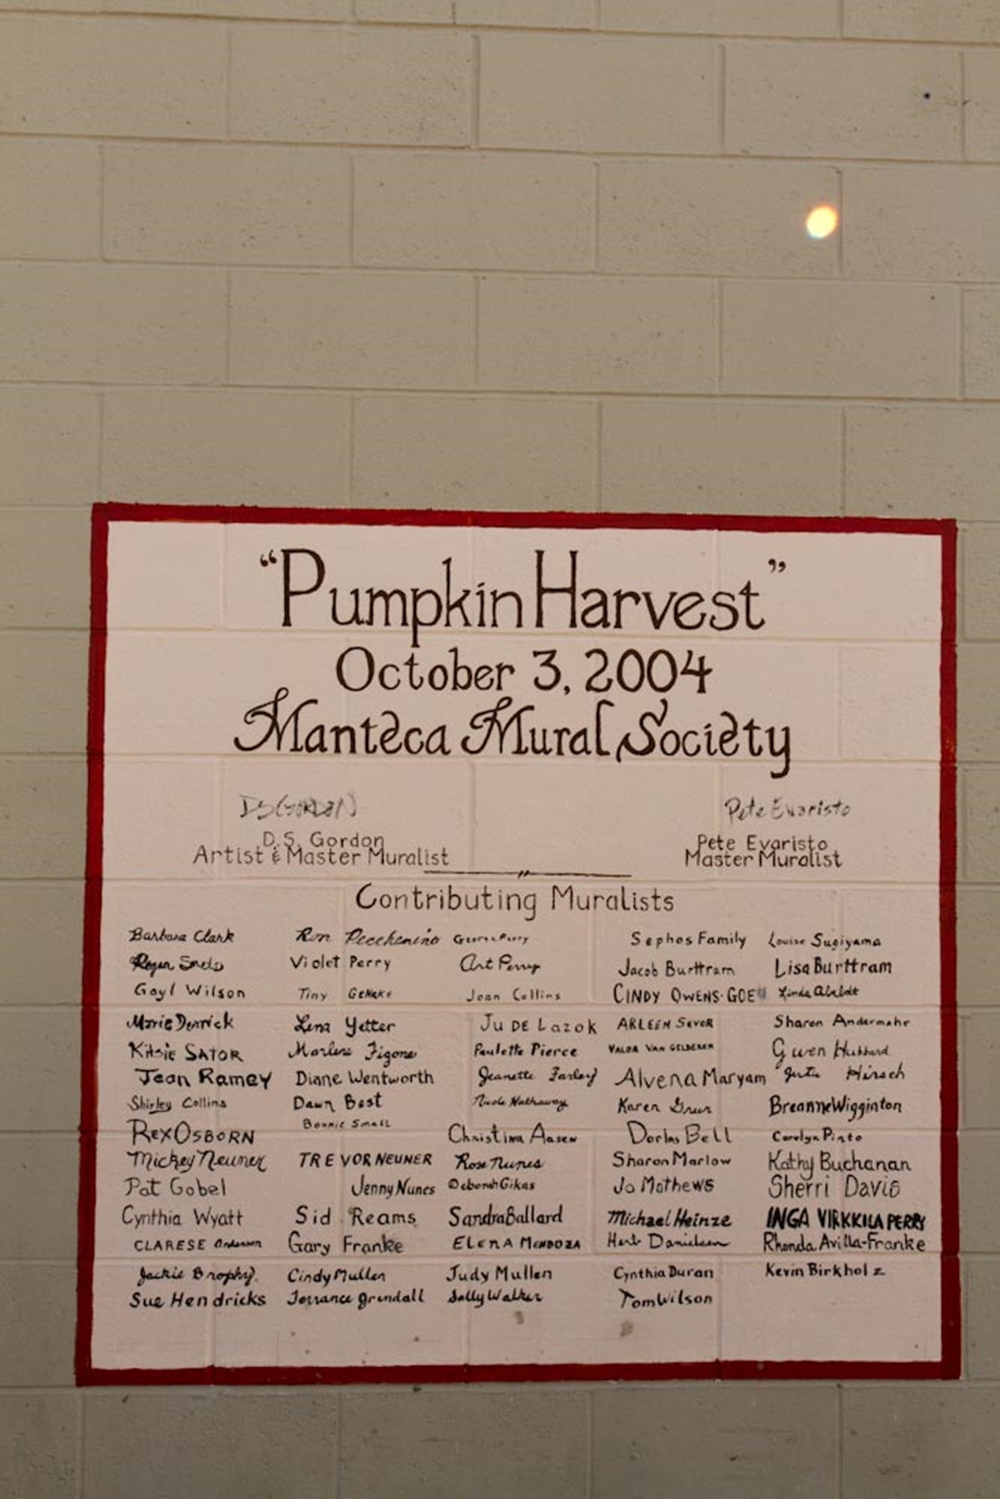 "Pumpkin Harvest"
October 3, 2004
Manteca Mural Society
DSGORDON Pete Evaristo
D.S. Gordon Pete Evaristo
Artist & Master Muralist Master Muralist
Contributing Muralists
Barbara Clark Ron Pecchenino George Perry Sephos Family Louise Sugiyama
Roger Violet Perry Art Perry Jacob Burttram Lisa Burttram
Gayl Wilson Tiny Joan Collins CINDY OWENS-GOE Linda
Marie Derrick Lena Yetter Ju DE Lazok ARLEEN Sharon Andermahr
SATOR Marlene Figone Paulette Pierce VALDA VAN GELDEREN Gwen Hubbard
Jean Ramey Diane Wentworth Jeanette Farley Alvena Maryam Hirsch
Shirley Collins Dawn Best Nicole Hathaway Karen BreanneWigginton
Bonnie Small
REX OSBORN Christina Aasen Bell Carolyn Pinto
Mickey Neuner TREVOR NEUNER Rose Nunes Sharon Marlow Kathy Buchanan
Pat Gobel Jenny Nunes Deborah Gikas Jo Mathews Sherri Davis
Cynthia Wyatt Sid Reams Sandra Ballard Michael Heinze INGA VIRKKILA PERRY
CLARESE Anderson Gary Franke ELENA MENDOZA Herb Danielsen Rhonda Avilla-Franke
Jackie Brophy. Cindy Mullen Judy Mullen Cynthia Duran Kevin Birkholz
Sue Hendricks Terrance Grindall Sally Walker Tom Wilson